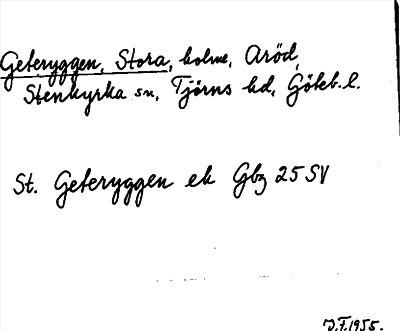 Geteryggen, Stora, holme, Aröd,
Stenkyrka sn, Tjörns hd, Göteb. l.
St. Geteryggen ek Gbg 25 SV
J.F. 1955.